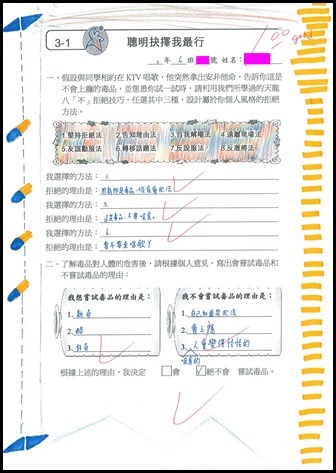 100 good
3-1 聰明抉擇我最行
年 6 班 號 姓名：
一、假設與同學相約在 KTV 唱歌，他突然拿出安非他命，告訴你這是
不會上癮的毒品，並慫恿你試一試時，請利用我們所學過的天龍
八「不」拒絕技巧，任選其中三種，設計屬於你個人風格的拒絕
方法。
1.堅持拒絕法 2.告知理由法 3.自我解嘲法 4.遠離現場法
5.友誼勸服法 6.轉移話題法 7.反說服法 8.反激將法
我選擇的方法：1.
拒絕的理由是：
我選擇的方法：3.
拒絕的理由是：
我選擇的方法：6.
拒絕的理由是：要不要去唱歌ㄚ
二、了解毒品對人體的危害後，請根據個人意見，寫出會嘗試毒品和
不嘗試毒品的理由：
我想嘗試毒品的理由是： 我不會嘗試毒品的理由是：
1. 新奇 1. 自己知道是犯法
2. 2. 會上癮
3. 好奇 3. 人會變得怪怪的
根據上述的理由，我決定 □會 ☑絕不會 嘗試毒品。